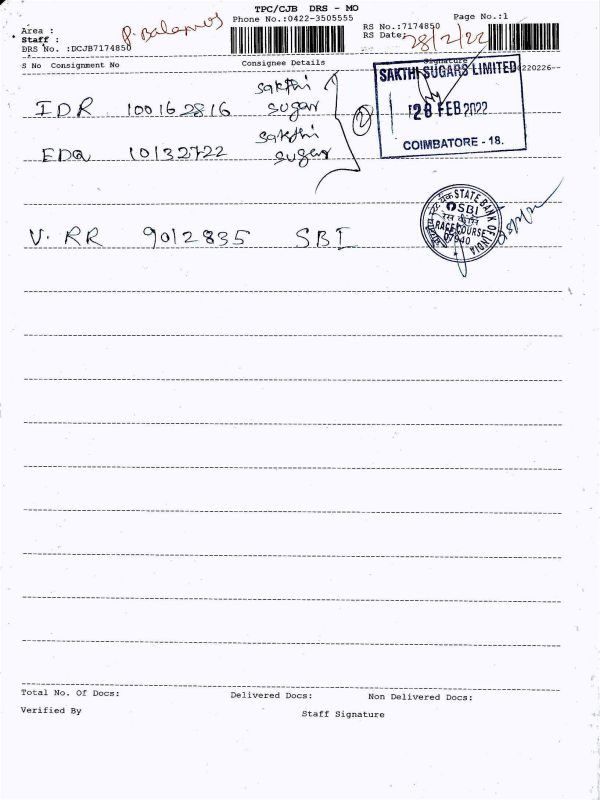 TPC/CJB DRS - MO
Phone No.:0422-3505555
Page No.:1
Area :
Staff :
DRS No. :DCJB7174850
RS No.:7174850
RS Date:
28/2/22
S No Consignment No
Consignee Details
Signature
220226--
SAKTHI SUGARS LIMITED
28 FEB 2022
COIMBATORE - 18.
IDR 100162816 sakthi sugar
EDQ 10132722 sakthi sugar
2
V. RR 9012835 SBI
STATE BANK OF INDIA
SBI
RACE COURSE
07940
Total No. Of Docs:
Delivered Docs:
Non Delivered Docs:
Verified By
Staff Signature